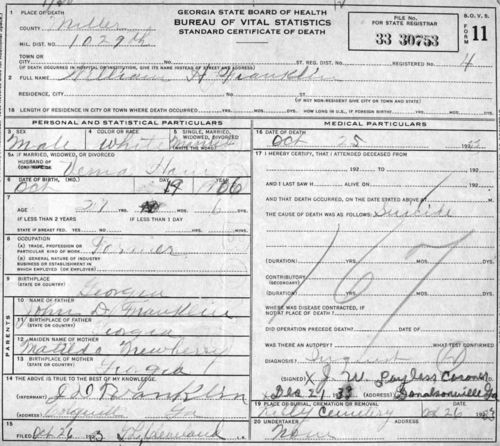 1 PLACE OF DEATH
COUNTY Miller
MIL. DIST. NO. 1029th
TOWN OR CITY
(IF DEATH OCCURRED IN HOSPITAL OR INSTITUTION, GIVE ITS NAME INSTEAD OF STREET AND ADDRESS)
GEORGIA STATE BOARD OF HEALTH
BUREAU OF VITAL STATISTICS
STANDARD CERTIFICATE OF DEATH
FILE NO.
FOR STATE REGISTRAR
33 30753
B.O.V.S.
FORM 11
NO. ST. REG. DIST. NO. REGISTERED NO. 4
2 FULL NAME William H Franklin
RESIDENCE, CITY NO. ST.
(IF NON-RESIDENT GIVE CITY OR TOWN AND STATE)
18 LENGTH OF RESIDENCE IN CITY OR TOWN WHERE DEATH OCCURRED YRS. MOS. DS. HOW LONG IN U.S., IF FOREIGN BIRTH? YRS. MOS. DS.
PERSONAL AND STATISTICAL PARTICULARS
3 SEX 4 COLOR OR RACE 5 SINGLE, MARRIED, WIDOWED, OR DIVORCED
Male White
5A IF MARRIED, WIDOWED, OR DIVORCED
HUSBAND OF
6 DATE OF BIRTH, (MO.) Oct DAY 19 1906
7 AGE 27 YRS. MOS. 6
IF LESS THAN 2 YEARS IF LESS THAN 1 DAY
STATE IF BREAST FED. YES NO HRS. MINS.
8 OCCUPATION
(A) TRADE, PROFESSION OR PARTICULAR KIND OF WORK Farmer
(B) GENERAL NATURE OF INDUSTRY BUSINESS OR ESTABLISHMENT IN WHICH EMPLOYED (OR EMPLOYER)
9 BIRTHPLACE (STATE OR COUNTRY) Georgia
PARENTS
10 NAME OF FATHER John D Franklin
11 BIRTHPLACE OF FATHER (STATE OR COUNTRY) Georgia
12 MAIDEN NAME OF MOTHER Matilda Newberry
13 BIRTHPLACE OF MOTHER (STATE OR COUNTRY) Georgia
14 THE ABOVE IS TRUE TO THE BEST OF MY KNOWLEDGE.
(INFORMANT) J D Franklin
(ADDRESS) Colquitt Ga
15 Oct 26 1933
MEDICAL PARTICULARS
16 DATE OF DEATH
Oct 25
17 I HEREBY CERTIFY, THAT I ATTENDED DECEASED FROM
192 TO 192
AND I LAST SAW H ALIVE ON 192
AND THAT DEATH OCCURRED, ON THE DATE STATED ABOVE AT M.
THE CAUSE OF DEATH WAS AS FOLLOWS: Suicide
167
(DURATION) YRS. MOS. DS.
CONTRIBUTORY (SECONDARY)
(DURATION) YRS. MOS. DS.
WHERE WAS DISEASE CONTRACTED, IF NOT AT PLACE OF DEATH?
DID OPERATION PRECEDE DEATH? DATE OF
WAS THERE AN AUTOPSY? WHAT TEST CONFIRMED
DIAGNOSIS?
(SIGNED) X J. W. Bayless Coroner
Dec 29 33 (ADDRESS) Donalsonville Ga
19 PLACE OF BURIAL, CREMATION OR REMOVAL DATE
Cemetery Oct 26 1933
20 UNDERTAKER
None